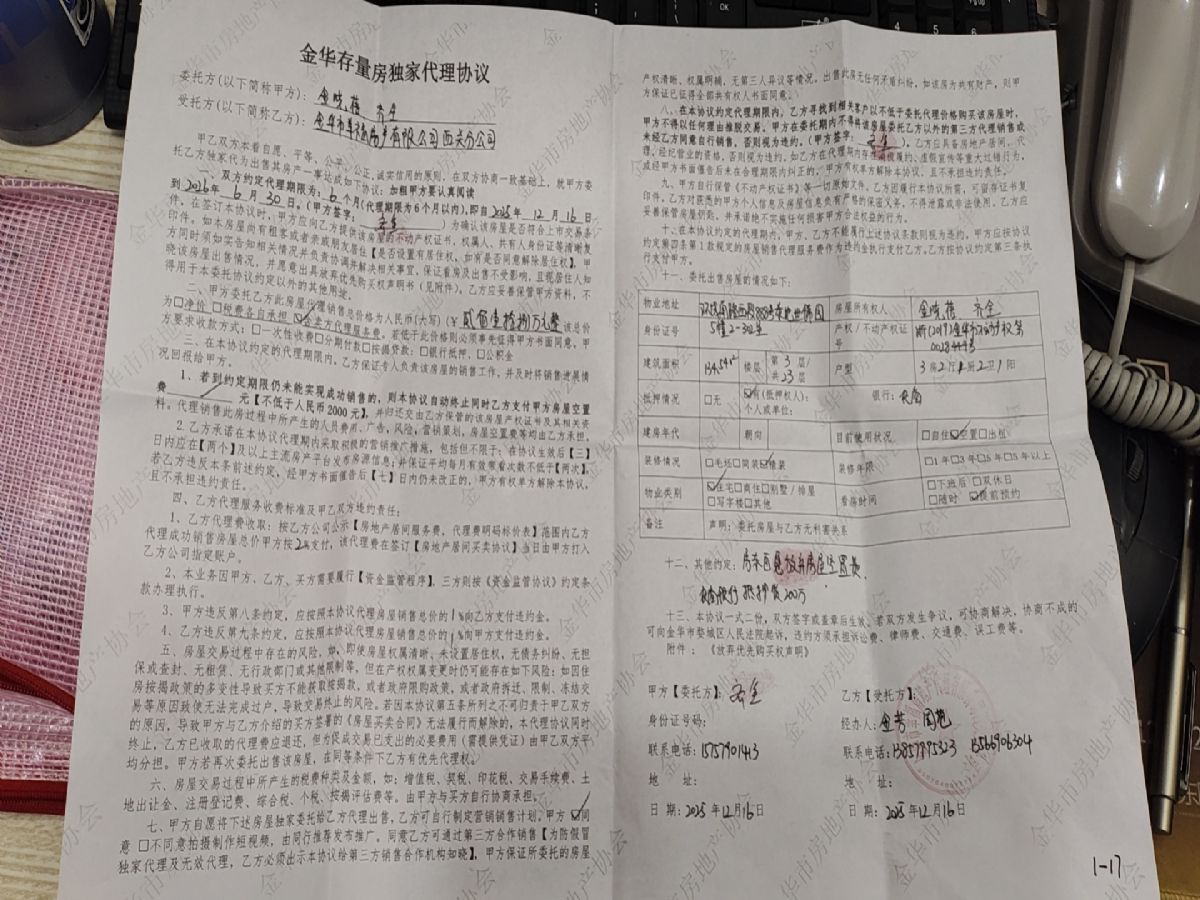 金华存量房独家代理协议
委托方(以下简称甲方)：金晓蓓 齐全
受托方(以下简称乙方)：金华市 房产有限公司西关分公司
甲乙双方本着自愿、平等、公平、公正、诚实信用的原则，在双方协商一致基础上，就甲方委
托乙方独家代为出售其房产一事达成如下协议：
一、双方约定代理期限为：6个月(代理期限为6个月以内)，即自2025年12月16日
到2026年6月30日。(甲方签字： )为确认该房屋是否符合上市交易条
件。在签订本协议时，甲方应向乙方提供该房屋的不动产权证书，权属人、共有人身份证等清晰复
印件。如本房屋尚有租客或者亲或朋友居住【是否设置有居住权，如有是否同意解除居住权】，甲
方同时须如实告知相关情况并负责协调并解决相关事宜，保证看房及出售不受影响，且现居住人知
晓该房屋出售情况，并愿意出具放弃优先购买权声明书(见附件)。乙方应妥善保管甲方资料，不
得用于本委托协议约定以外的其他用途。
二、甲方委托乙方此房屋代理销售总价格为人民币(大写)(￥贰佰壹拾捌万元整 该总价
为□净价 □税费各自承担 ☑含卖方代理服务费。若低于此价格则必须事先征得甲方书面同意，甲
方要求收款方式：□一次性收费□分期付款□按揭贷款：□银行抵押，□公积金
三、在本协议约定的代理期限内，乙方保证专人负责该房屋的销售工作，并及时将销售进展情
况回报给甲方。
1、若到约定期限仍未能实现成功销售的，则本协议自动终止同时乙方支付甲方房屋空置
费 元【不低于人民币2000元】，并归还交由乙方保管的该房屋产权证书及其相关资
料。代理销售此房过程中所产生的人员费用、广告，风险，营销策划，房屋空置费等均由乙方承担。
2.乙方承诺在本协议代理期内采取积极的营销推广措施，包括但不限于：在协议生效后【三】
日内应在【两个】及以上主流房产平台发布房源信息；并保证平均每月有效带看次数不低于【两次】。
若乙方违反本条前述约定，经甲方书面催告后【七】日内仍未改正的，甲方有权单方解除本协议，
且不承担违约责任。
四、乙方代理服务收费标准及甲乙双方违约责任：
1、乙方代理费收取：按乙方公司公示【房地产居间服务费，代理费明码标价表】范围内乙方
代理成功销售房屋总价甲方按2%支付，该代理费在签订【房地产居间买卖协议】当日由甲方打入
乙方公司指定账户。
2、本业务因甲方、乙方、买方需要履行【资金监管程序】，三方则按《资金监管协议》约定条
款办理执行。
3、甲方违反第八条约定，应按照本协议代理房屋销售总价的1%向乙方支付违约金。
4、乙方违反第九条约定，应按照本协议代理房屋销售总价的1%向甲方支付违约金。
五、房屋交易过程中存在的风险，如、即使房屋权属清晰、未设置居住权，无债务纠纷、无担
保或查封、无租赁、无行政部门或其他限制等，但在产权权属变更时仍可能存在如下风险：如因住
房按揭政策的多变性导致买方不能获取按揭款，或者政府限购政策，或者政府拆迁、限制、冻结交
易等原因致使无法完成过户，导致交易终止的风险。若因本协议第五条所列之不可归责于甲乙双方
的原因，导致甲方与乙方介绍的买方签署的《房屋买卖合同》无法履行而解除的，本代理协议同时
终止，乙方已收取的代理费应退还，但为促成交易已支出的必要费用(需提供凭证)由甲乙双方平
均分担。甲方若再次委托出售该房屋，在同等条件下乙方有优先代理权。
六、房屋交易过程中所产生的税费种类及金额，如：增值税、契税、印花税、交易手续费、土
地出让金、注册登记费、综合税、个税、按揭评估费等。由甲方与买方自行协商承担。
七、甲方自愿将下述房屋独家委托给乙方代理出售，乙方可自行制定营销销售计划。甲方☑同
意 □不同意拍摄制作短视频，由同行推荐发布推广。同意乙方可通过第三方合作销售【为防假冒
独家代理及无效代理，乙方必须出示本协议给第三方销售合作机构知晓】，甲方保证所委托的房屋
产权清晰、权属明确，无第三人异议等情况，出售此房无任何矛盾纠纷，如该房为共有财产，则甲
方保证已征得全部共有权人书面同意。
八、在本协议约定代理期限内，乙方寻找到相关客户以不低于委托代理价格购买该房屋时，
甲方不得以任何理由推脱交易。甲方在委托期内不得将该房屋委托乙方以外的第三方代理销售或
未经乙方同意自行销售，否则视为违约。(甲方签字： )，乙方应具备房地产居间、代
理，经纪营业的资格，否则视为违约，如乙方在代理期内存在消极履约、虚假宣传等重大过错行为，
或经甲方书面催告后未在合理期限内纠正的，甲方有权单方解除本协议，且不承担违约责任。
九、甲方自行保管《不动产权证书》等一切原始文件。乙方因履行本协议所需，可留存证书复
印件。乙方对获悉的甲方个人信息及房屋信息负有严格的保密义务，不得泄露或非法使用。乙方应
妥善保管房屋钥匙，并承诺绝不实施任何损害甲方合法权益的行为。
十、在本协议约定的代理期内，甲方、乙方不能履行上述协议条款则视为违约，甲方应按协议
约定第四条第1款规定的房屋销售代理服务费作为违约金执行支付乙方，乙方按协议约定第三条执
行支付甲方。
十一、委托出售房屋的情况如下：
物业地址 888号 5幢2-302室 房屋所有权人 金晓蓓 齐全
身份证号 产权/不动产权证号
建筑面积 134.54m² 楼层 第3层/共23层 户型 3房2厅1厨2卫1阳
抵押情况 □无 ☑有(抵押权人)： 个人或单位： 银行：
建房年代 朝向 目前使用状况 □自住☑空置□出租
装修情况 □毛坯□简装☑精装 装修年限 □1年□3年□5年□5年以上
物业类别 ☑住宅□商住□别墅/排屋 □写字楼□其他 看房时间 □下班后 □双休日 □随时 ☑提前预约
备注 声明：委托房屋与乙方无利害关系
十二、其他约定：房东自愿放弃房屋空置费
银行 抵押贷200万
十三、本协议一式二份，双方签字或盖章后生效。若双方发生争议，可协商解决，协商不成的
可向金华市婺城区人民法院起诉，违约方须承担诉讼费、律师费、交通费、误工费等。
附件：《放弃优先购买权声明》
甲方【委托方】：齐全
身份证号码：
联系电话：15757901413
地 址：
日 期：2025年12月16日
乙方【受托方】：
经办人：金芳 周艳
联系电话：13857995323 13566906304
地 址：
日 期：2025年12月16日
1-17